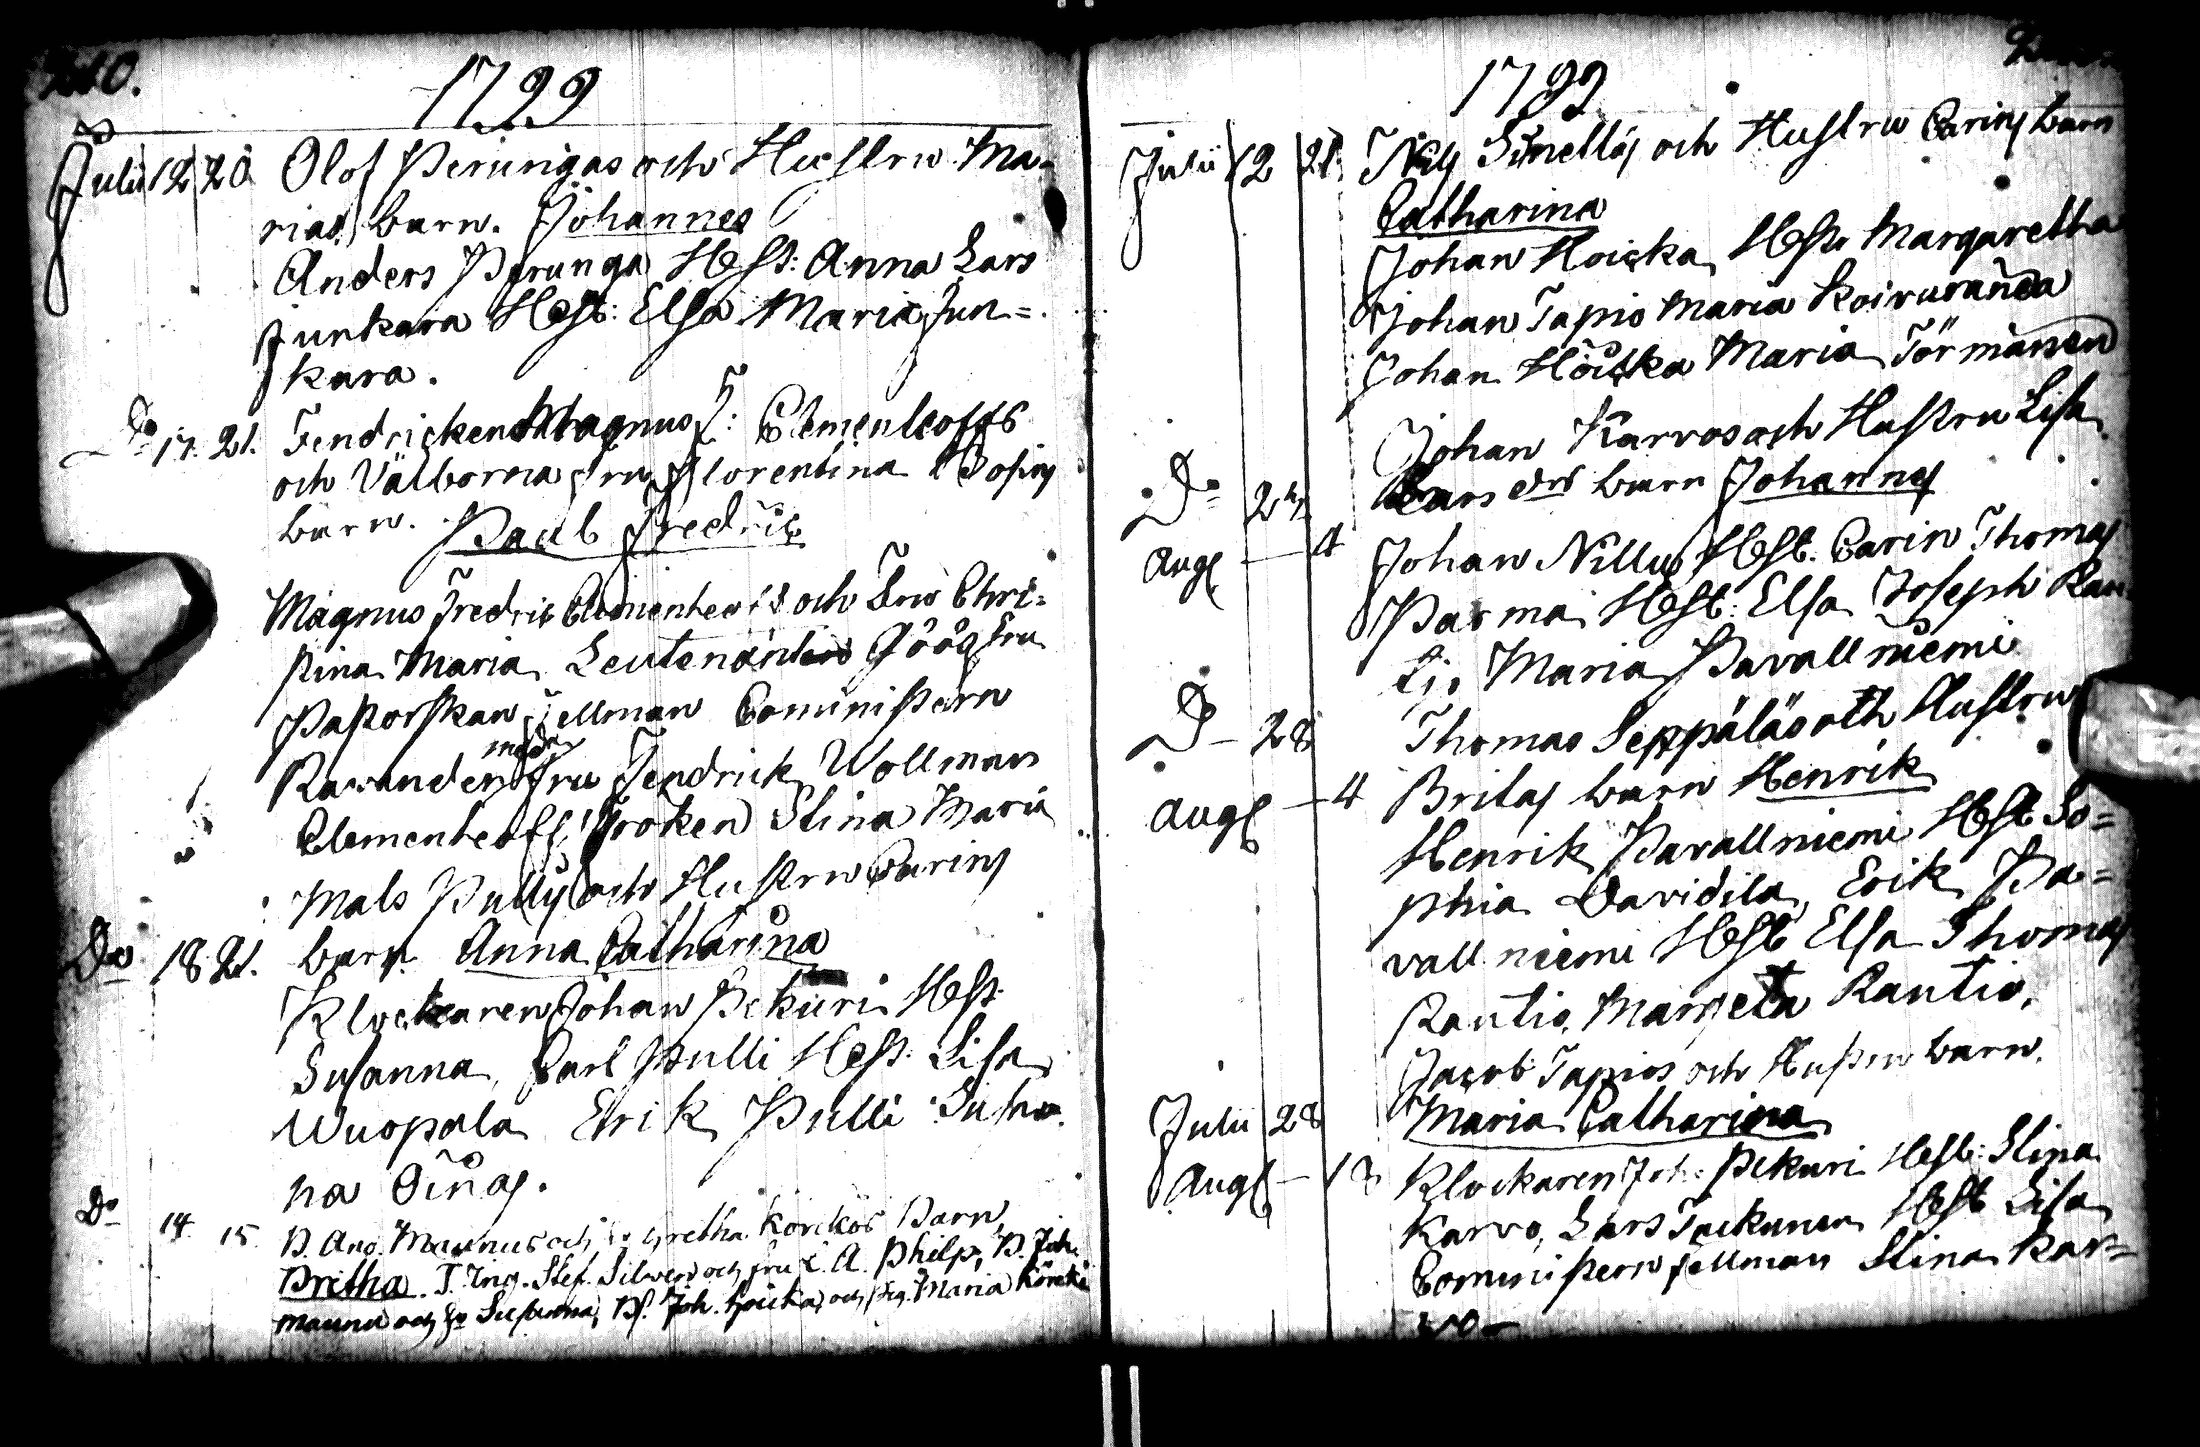 210.
1799
Julii 12 20 Olof Perungas och Hustru Ma=
rias barn. Johannes
Anders Perunga Hust: Anna Lars
Junkara Hust: Elsa Maria Jun=
kara.
Do 17. 21. Fendricken Magnus F: Clementeoffs
och Välborna fru Florentina Bosins
barn. Paul Fredric
Magnus Fredric Clementeoff och Fru Chri=
stina Maria Leutenanten Gööq fru
Pastorskan Fellman Commistern
Ravander med fru Fendrick Wollman
Clementeoff, Fröken Stina Maria
Mats Pullis och Hustru Carins
Do 18 21. barn. Anna Catharina
Klockaren Johan Pekuri Hust:
Susanna, Carl Pulli Hust: Lisa
Wuopala Erik Pulli Susa
na Oinas.
Do 14 15 B. And. Maunus och Gretha Körckös Barn,
Britha. T. Ing. Stef. Silwen och fru C. A. Philp; B. Joh.
maunu och Susanna, Joh. Hoicka, och pig. Maria Körckö
1799
Julii 12 21. Nils Simellis och Hustru Carins barn
Catharina
Johan Hoicka Hust Margaretha
Johan Tapio Maria Koivuranda
Johan Hoicka Maria Törmänen
Johan Karvos och Hustru Lisa
Do 24 Lars drs barn Johannes
Aug 4 Johan Nillus Hust. Carin Thomas
Parma Hust: Elsa Joseph Ran
tio Maria Pavallniemi
Do 28 Thomas Seppäläs och Hustru
Aug 4 Britas barn Henrik
Henrik Pavallniemi Hust So=
phia Davidila, Erik Pa=
vallniemi Hust Elsa Thomas
Rantio, Margeta Rantio,
Jacob Tapios och Hustru barn.
Julii 28 Maria Catharina
Aug 18 Klockaren Joh: Pekuri Hust: Stina
Karvo, Lars Tackunen Hust Lisa
Commistern Fellman Stina Kar=
vo